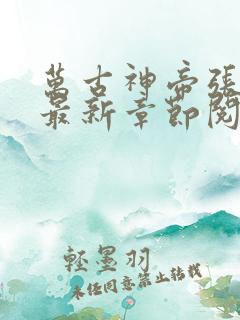 萬古神帝張
最新章節閱
輕墨羽
未经同意禁止转载